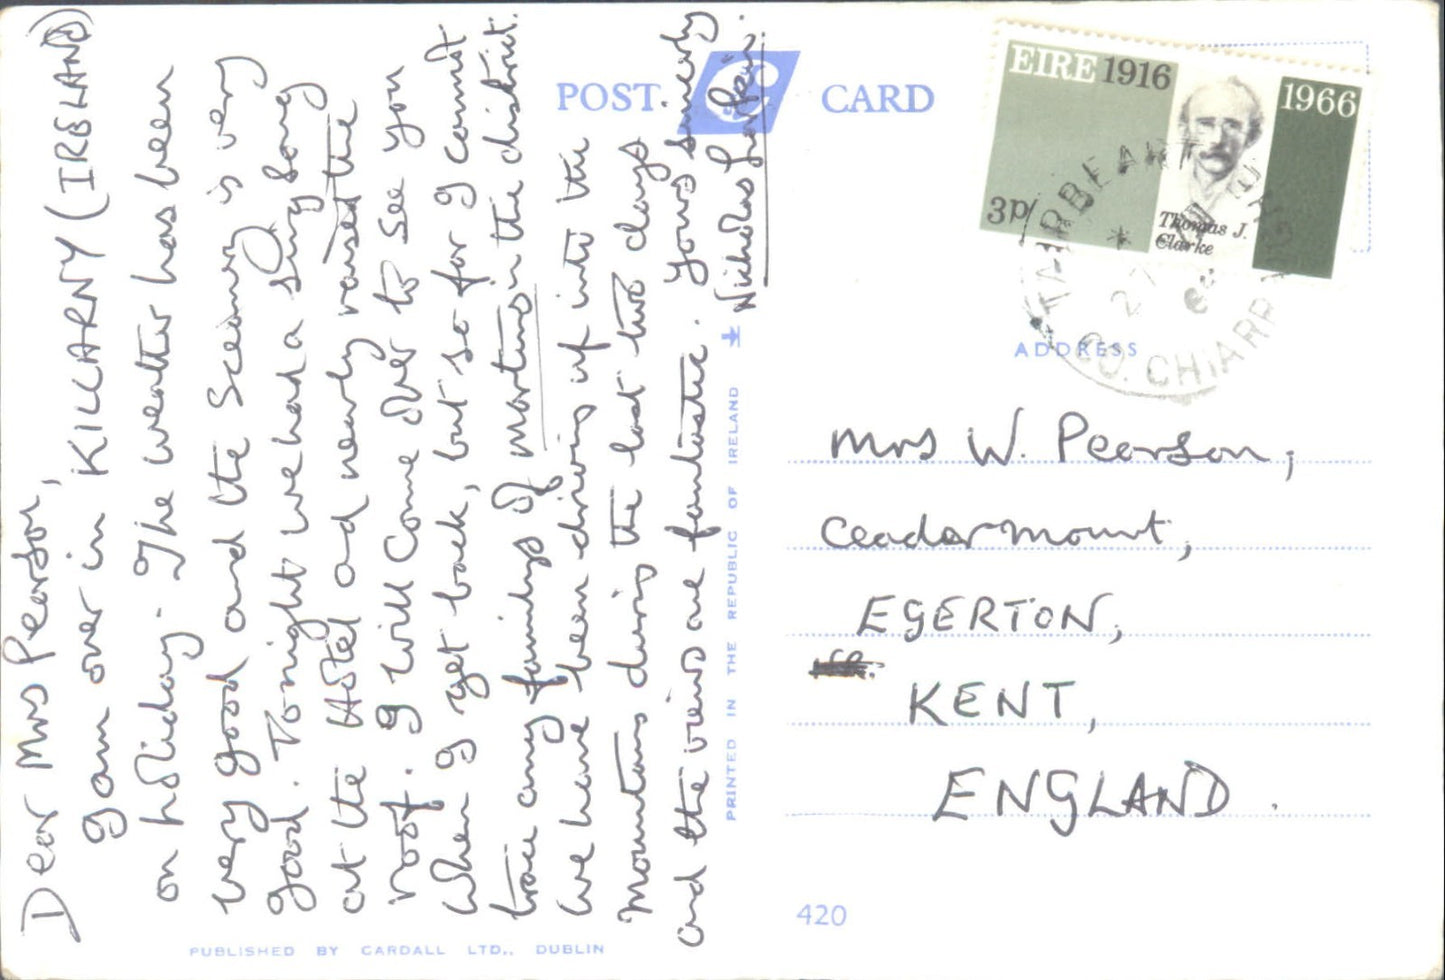 Dear Mrs Pearson,
I am over in KILLARNY (IRELAND)
on holiday. The weather has been
very good and the Scenery is very
good. Tonight we had a Sing Song
at the Hotel and nearly raised the
roof. I will Come Over to See you
When I get back, but so far I cannot
trace any familys of Martin in the district.
We have been driving up into the
Mountains during the last two days
and the views are fantastic. Yours Sincerely
Nicholas
POST CARD
EIRE 1916
1966
3p
Thomas J.
Clarke
CO. CHIARRAI
ADDRESS
Mrs W. Pearson,
Ceadarmount,
EGERTON,
KENT,
ENGLAND.
PRINTED IN THE REPUBLIC OF IRELAND
420
PUBLISHED BY CARDALL LTD., DUBLIN